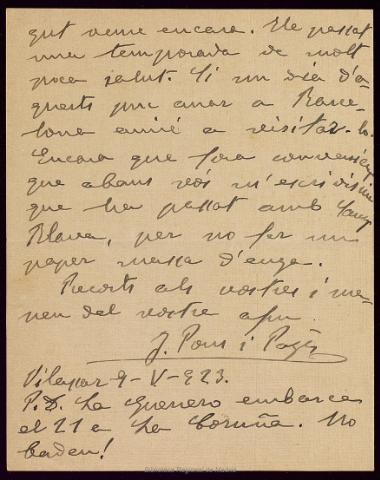 gut veure encara. He passat
una temporada de molt
poca salut. Si un dia d'a-
quests puc anar a Barce-
lona aniré a visitar-lo.
Encara que fora convenient
que abans vós m'escrivissiu
que ha passat amb Sang
Blava, per no fer un
paper massa d'enze.
Records als vostres i ma-
neu del vostre afm.
J. Pons i Pagès
Vilassar 9-V-923.
P.D. La Guerrero embarca
el 21 a La Coruña. No
baden!